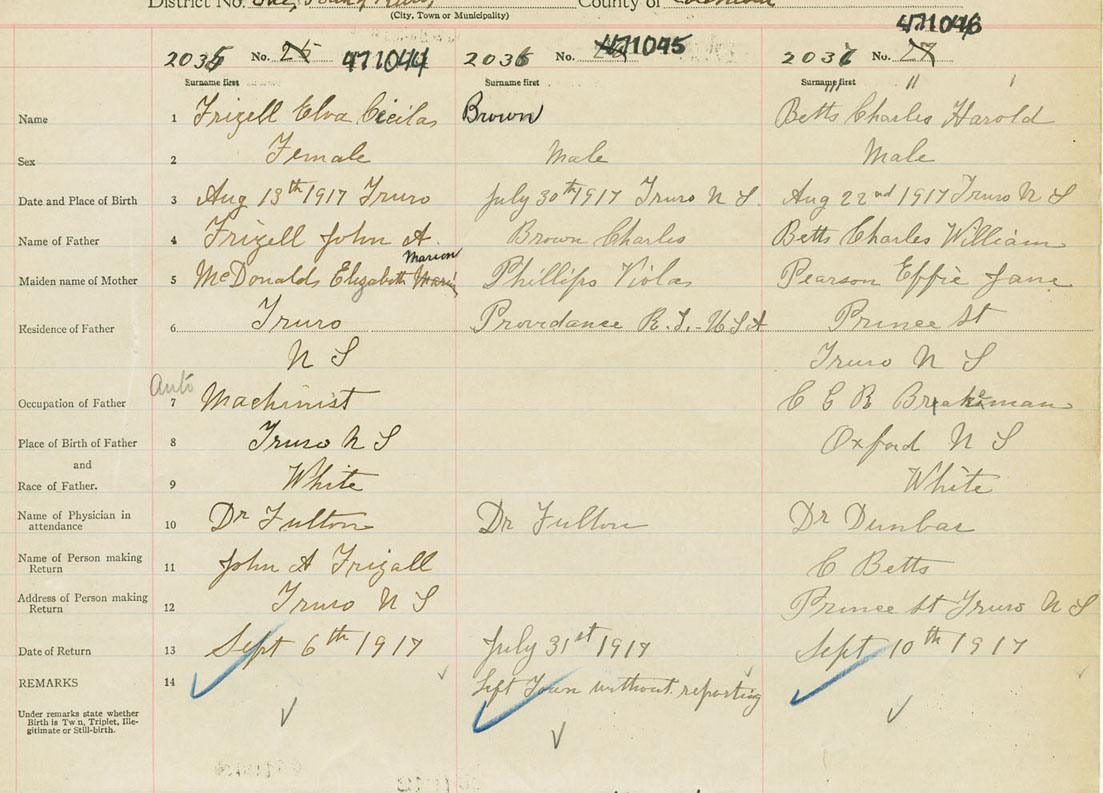 District No. One, Town of Truro County of Colchester
(City, Town or Municipality)
2035 No. 25 471044 2036 No. 471045 2037 No. 27 471046
Surname first Surname first Surname first
Name 1 Frizell Elva Cicilas Brown Betts Charles Harold
Sex 2 Female Male Male
Date and Place of Birth 3 Aug 13th 1917 Truro July 30th 1917 Truro N S. Aug 22nd 1917 Truro N S
Name of Father 4 Frizell John A. Brown Charles Betts Charles William
Marion
Maiden name of Mother 5 McDonalds Elizabeth Phillips Violas Pearson Effie Jane
Residence of Father 6 Truro Providance R. I. - U S A Prince St
N S Truro N S
Auto
Occupation of Father 7 Machinist C G R Breakeman
Place of Birth of Father 8 Truro N S Oxford N S
and
Race of Father. 9 White White
Name of Physician in attendance 10 Dr Fulton Dr Fulton Dr Dunbar
Name of Person making Return 11 John A Frizall C Betts
Address of Person making Return 12 Truro N S Prince St Truro N S
Date of Return 13 Sept 6th 1917 July 31st 1917 Sept 10th 1917
REMARKS 14 Left Town without reporting
Under remarks state whether
Birth is Twin, Triplet, Ille-
gitimate or Still-birth.